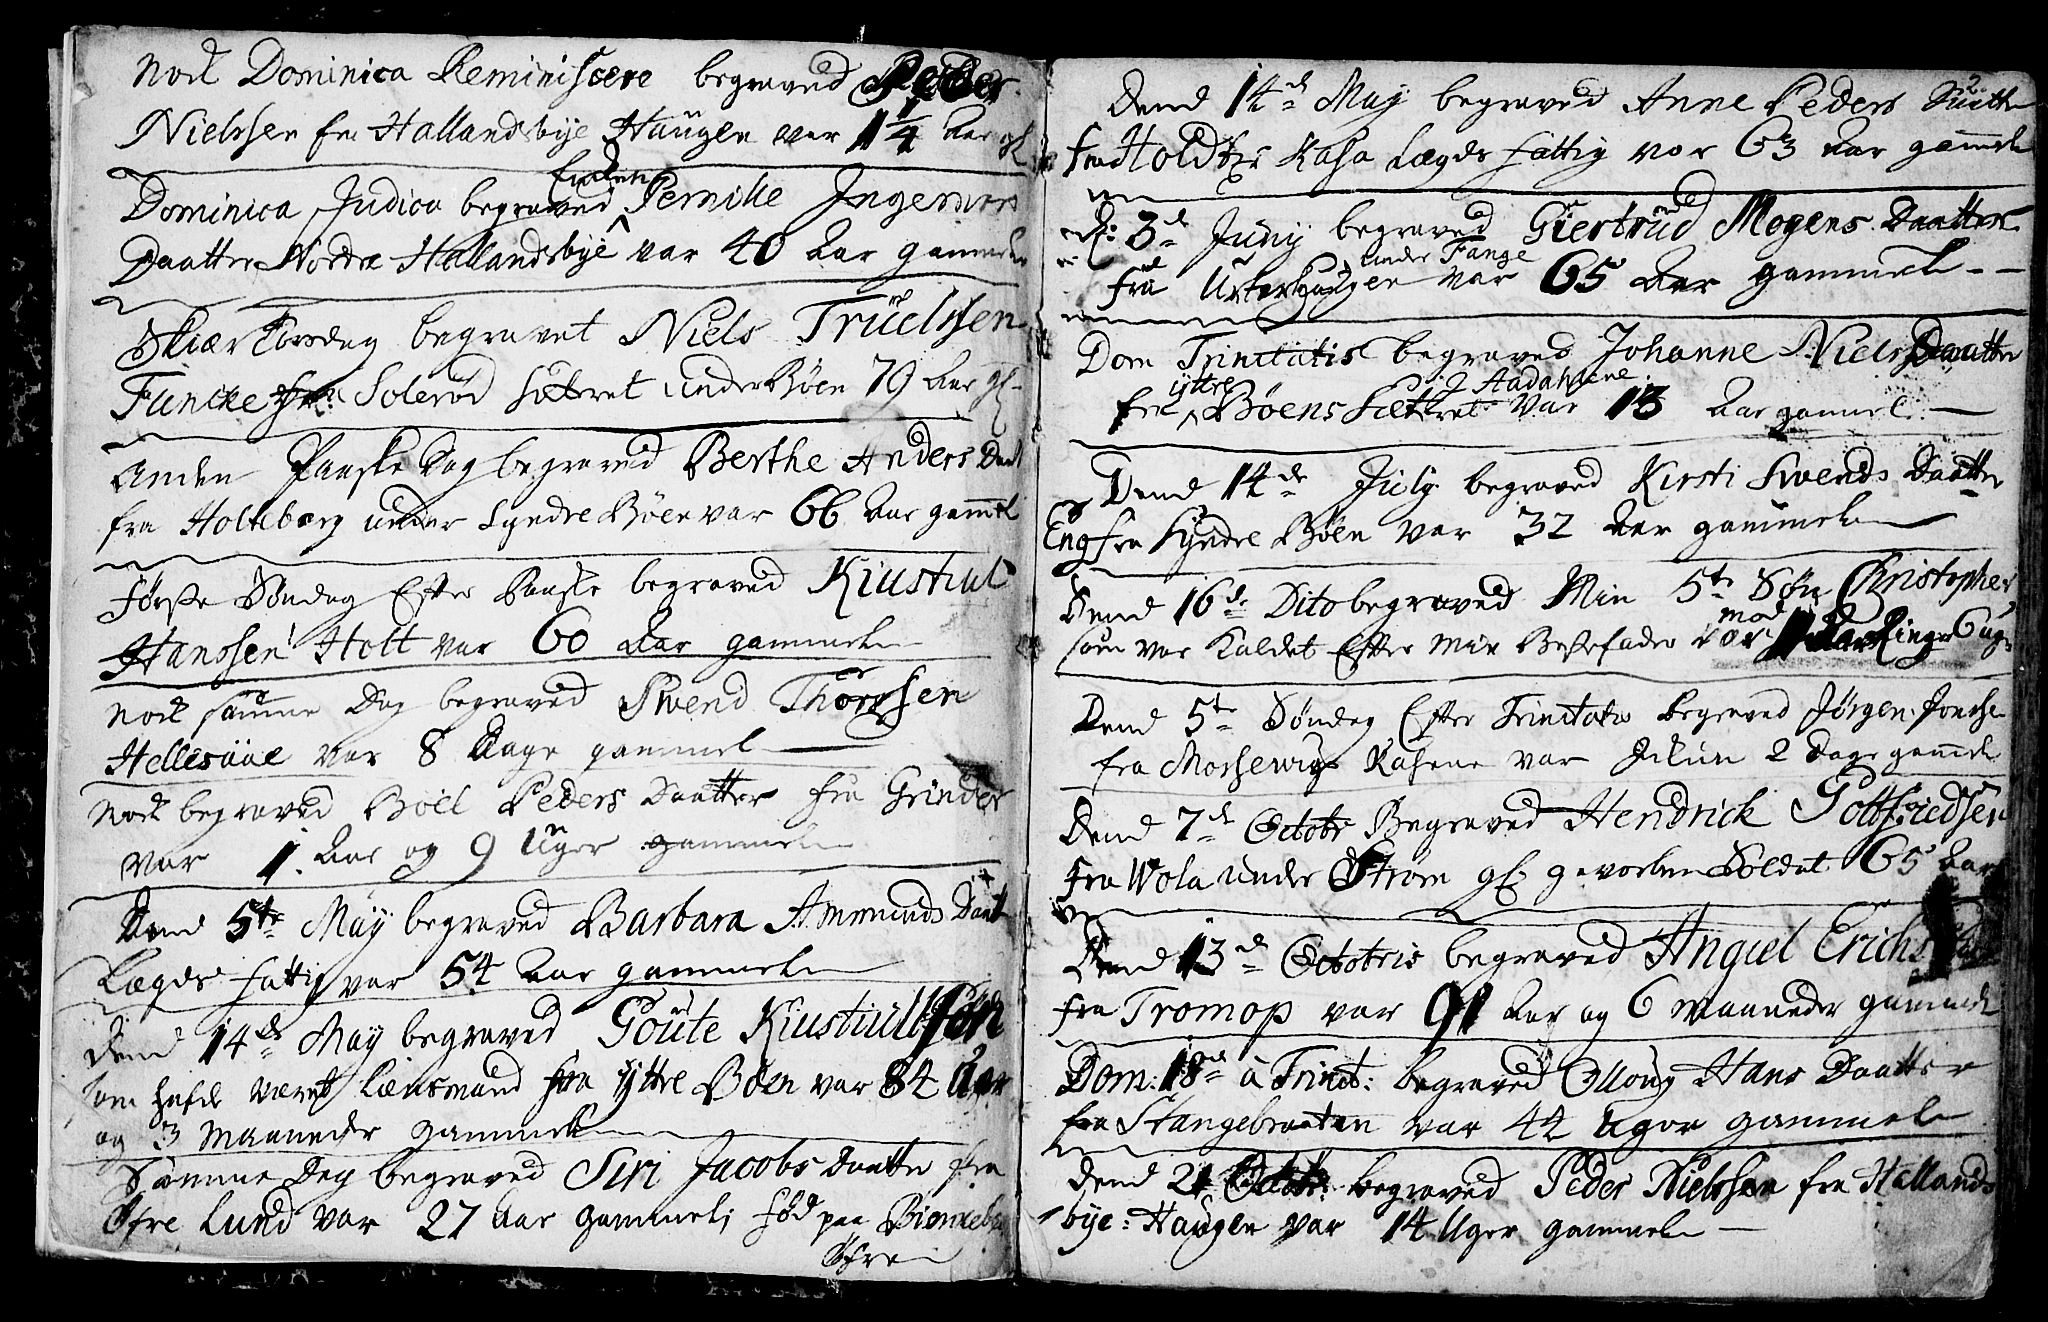 Nock Dominica Reminiscere begraved Peder
Nielssen fra Hallandsbye Haugen var 1 1/4 Aar gl
Dominica Judica begraved Enken Pernille Ingemors
Daatter Nordre Hallandsbye var 40 Aar gammel
Skiær Torsdag begravet Niels Truelssen
Funcke fra Solerød Sæteret under Bøen 79 Aar gl
Anden Paaske Dag begraved Berthe Anders Daat
fra Holteborg under Syndre Bøen var 66 Aar gamel
Første Søndag Efter Paaske begraved Kiustul
Hanssen Holt var 60 Aar gammel
Nock samme Dag begraved Svend Thorssen
Hellesaae var 8 Dage gammel
Nock begraved Boel Peders Daatter fra Grinder
var 1. Aar og 9 Uger gammel
Dend 5te May begraved Barbara Ammunds Daat
Lægds fattig var 54 Aar gammel
Dend 14de May begraved Goute Kiustulssøn
som hafde været Lænsmand fra yttre Bøen var 84 Aar
og 3 Maaneder gammel
Samme Dag begraved Siri Jacobs Daatter fra
Øfre Lund var 27 Aar gammel, fød paa
Øfre
Dend 14de May begraved Anne Peders Datter
fra Holdter Kasa Lægds fattig var 63 Aar gamel
3de Juny begraved Giertrud Mogens Daatter
fra under Fange var 65 Aar gammel
Dom Trinitatis begraved Johanne Niels Daatter
fra yttre Bøens Sæteret J Aadahlene var 13 Aar gammel
Dend 14de July begraved Kirsti Svends Daatter
Eng fra Syndre Bøen var 32 Aar gammel
Dend 16de Dito begraved Min 5te Søn Christopher
som var kaldet Efter Min Bestefader var 6 Uger
Dend 5te Søndag Efter Trinitatis begraved Jørgen Jonsen
fra Mossewigs Kasene var Ickun 2 Dage gamel
Dend 7de Octobr Begraved Hendrick Gottfriedsen
fra Wola under Strøm gl gevorben Soldat 65 Aar
Dend 13de Octobris begraved Anguel Erichs
fra Tromop var 91 Aar og 6 Maaneder gammel
Dom: 18de a Trinit: begraved Olloug Hans Daatter
fra Stangebraaten var 42 Uger gammel
Dend 21 Octobr: begraved Peder Nielssen fra Hallands
bye: Haugen var 14 Uger gammel